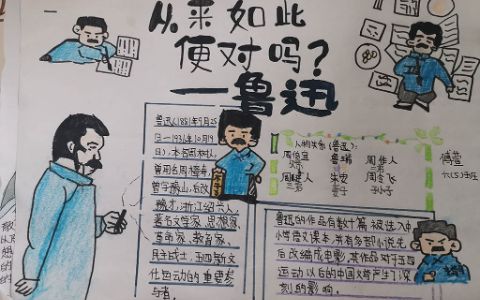 从来如此
便对吗?
—鲁迅
鲁迅(1881年9月25
日—1936年10月19
日),本名周树人,
曾用名周樟寿,
曾字豫山,后改
豫才,浙江绍兴人
著名文学家、思想家
革命家、教育家、
民主战士,五四新文
化运动的重要参
与者。
人物关系(鲁迅):
周伯宜 鲁瑞 周作人
父亲 二弟
周建人 朱安 周令飞
三弟 妻子 孙子
六(5)班
鲁迅的作品有数十篇被选入中
小学语文课本,并有多部小说先
后改编成电影,其作品对于五四
运动以后的中国文学产生了深
刻的影响。